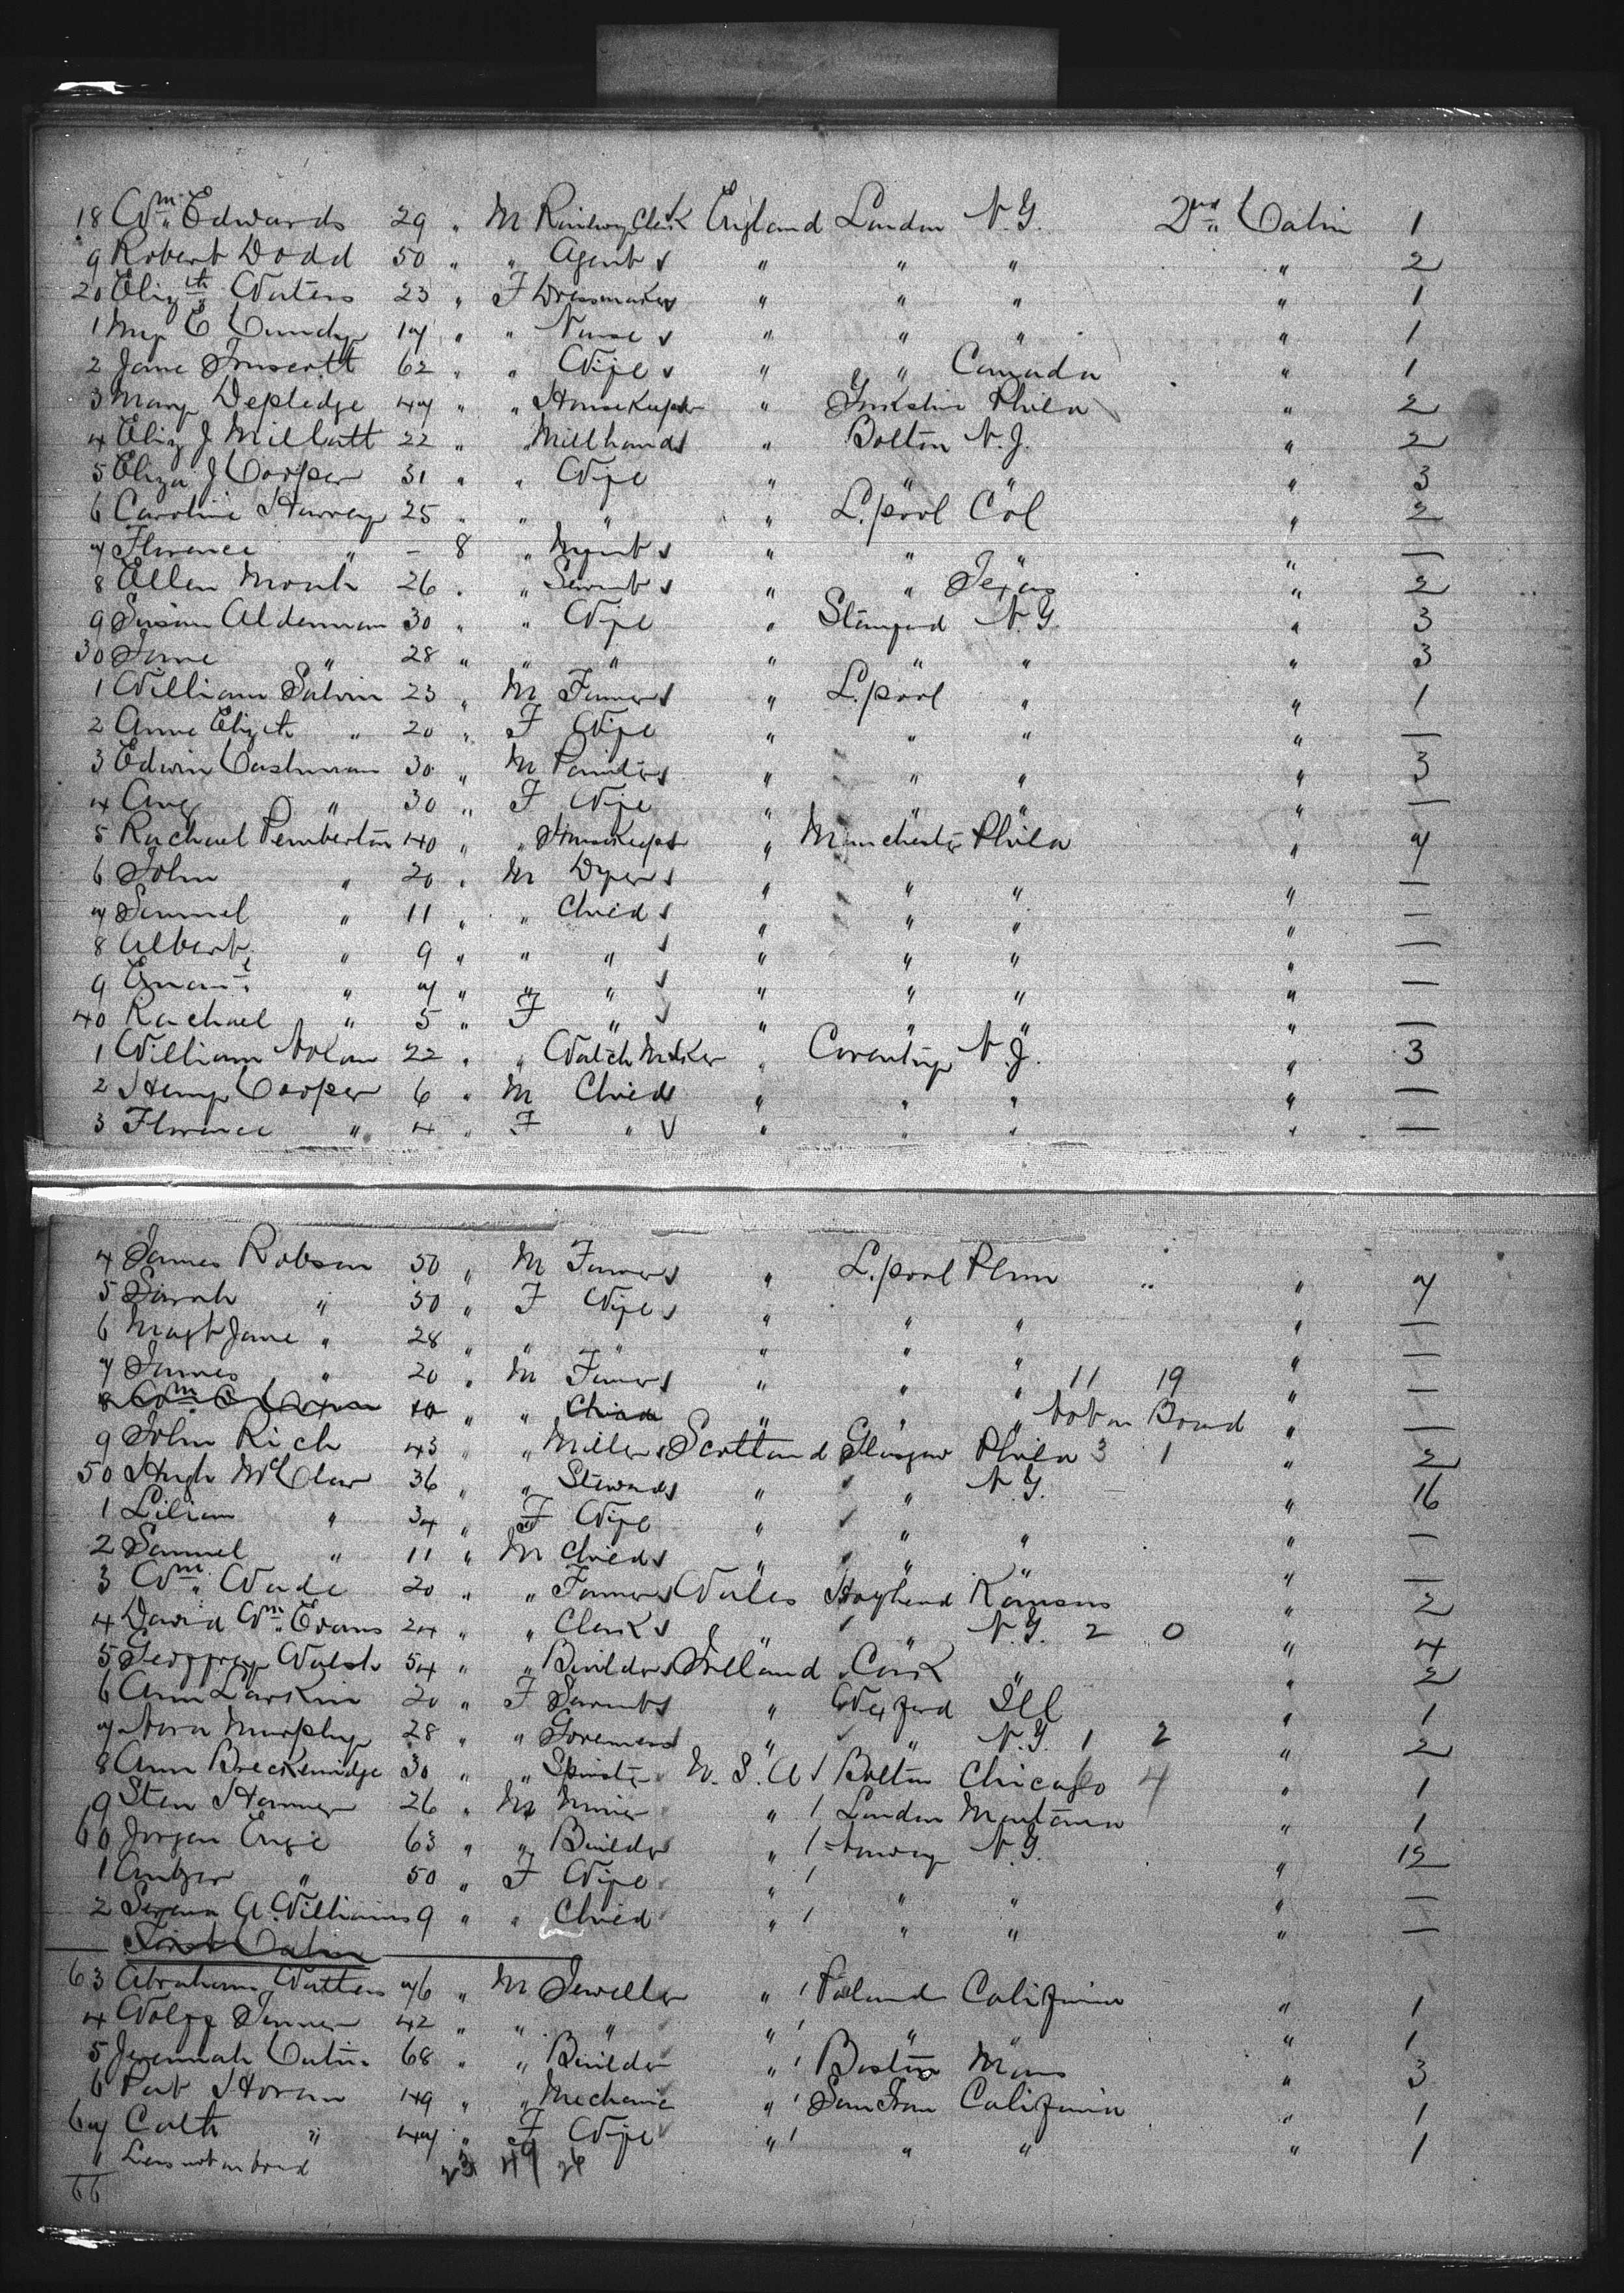 18 Wm. Edwards 29 " M Railway Clerk England London N.Y. 2nd Cabin 1
9 Robert Dodd 50 " " Agent " " " " 2
20 Elizth Waters 23 " F Dressmaker " " " " 1
1 E Cundy 17 " " Nurse " " " " 1
2 Jane Truscott 62 " " Wife " " Canada " 1
3 Mary Depledge 47 " " Housekeeper " Yorkshire Phila " 2
4 Eliz J Millatt 22 " " Millhand " Bolton N.J. " 2
5 Eliza J Cooper 31 " " Wife " " " " 3
6 Caroline Harvey 25 " " " " L.pool Col " 2
7 Florence " – 8 " Infant " " " " —
8 Ellen Monk 26 " " Servant " " Texas " 2
9 Susan Alderman 30 " " Wife " Stamford N.Y. " 3
30 Jane " 28 " " " " " " " 3
1 William Salvin 23 " M Farmer " L.pool " " 1
2 Anne Elizth " 20 " F Wife " " " " —
3 Edwin Cashman 30 " M Painter " " " " 3
4 Amy " 30 " F Wife " " " " —
5 Rachael Pemberton 40 " " Housekeeper " Manchester Phila " 7
6 John " 20 " M Dyer " " " " —
7 Samuel " 11 " " Child " " " " —
8 Albert " 9 " " " " " " " —
9 " 7 " " " " " " " —
40 Rachael " 5 " F " " " " " —
1 William Nolan 22 " " Watch Maker " Coventry N.J. " 3
2 Henry Cooper 6 " M Child " " " " —
3 Florence " 4 " F " " " " " —
4 James Robson 50 " M Farmer " L.pool Penn " " 7
5 Sarah " 50 " F Wife " " " " 7
6 Magt Jane " 28 " " " " " " " —
7 James " 20 " M Farmer " " " 11 19 " —
8 Wm. 10 " " Child " " " Not on Board " —
9 John Rich 43 " " Miller Scotland Glasgow Phila 3 1 " 2
50 Hugh McClar 36 " " Steward " " N.Y. " 16
1 Lilian " 34 " F Wife " " " " —
2 Samuel " 11 " M Child " " " " —
3 Wm. Wade 20 " " Farmer Wales Holyhead Kansas " 2
4 David Wm. Evans 24 " " Clerk " " N.Y. 2 0 " 4
5 Geoffrey Walsh 54 " " Builder Ireland Cork " " 2
6 Ann Larkin 20 " F Servant " Wexford Ill " 1
7 Nora Murphy 28 " " Governess " " N.Y. 1 2 " 2
8 Ann Breckenridge 30 " " Spinster U.S.A Bolton Chicago 4 " 1
9 Sten Hammer 26 " M Miner " London Montana " 1
60 Jorgen Enge 63 " " Builder " Norway N.Y. " 12
1 " 50 " F Wife " " " " —
2 Serena A. Williams 9 " " Child " " " " —
First Cabin
63 Abraham Watters 76 " M Jeweller " Poland California " 1
4 Wolff Tanner 42 " " " " " " " 1
5 Jeremiah 68 " " Builder " Boston Mass " 3
6 Pat Horan 49 " " Mechanic " San Fran California " 1
67 Cath " 47 " F Wife " " " " 1
1 Less not on board 23 19 24
66